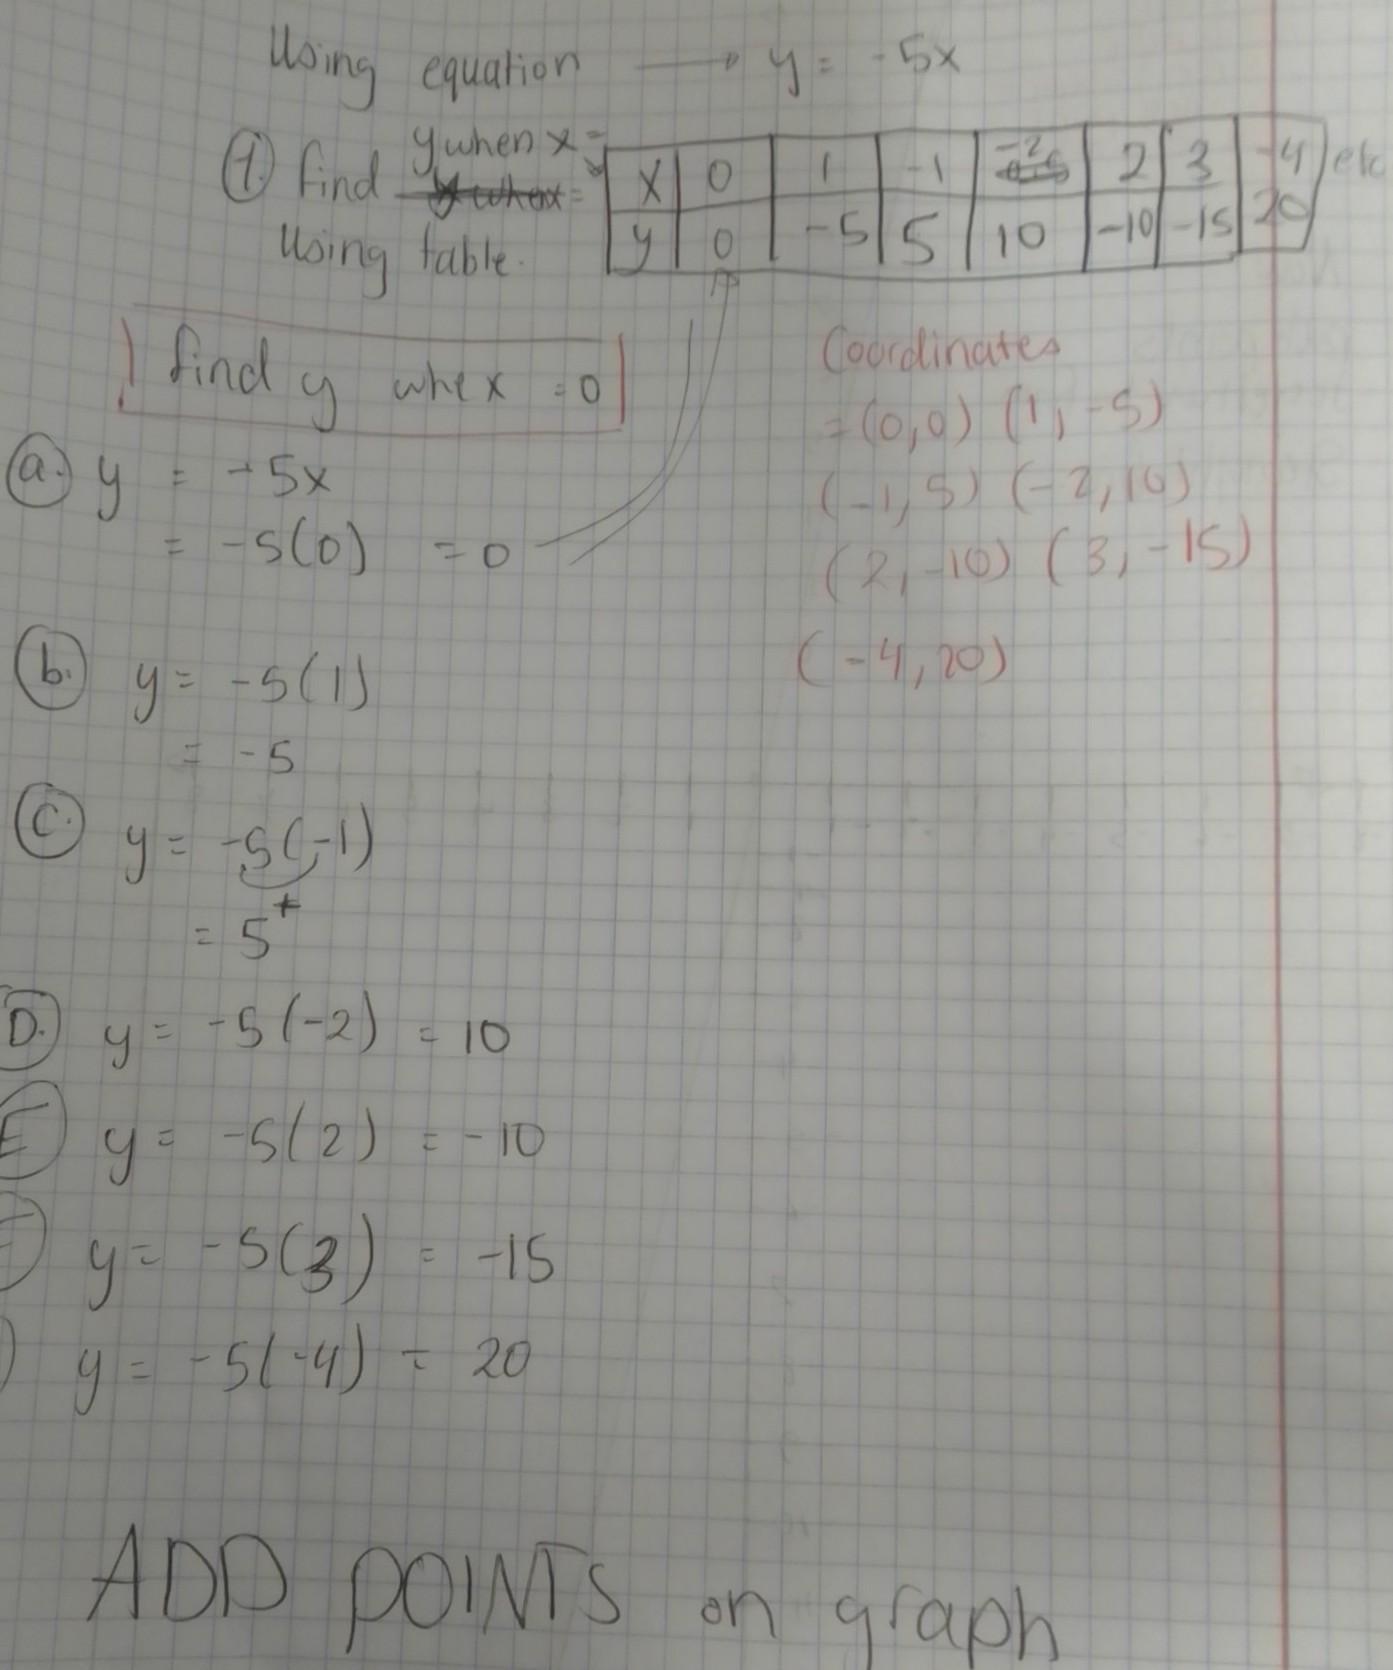 Using equation → y = -5x
1. find y when x =
using table.
x 0 1 -1 -2 2 3 -4 etc
y 0 -5 5 10 -10 -15 20
find y whe x = 0
Coordinates
= (0,0) (1, -5)
(-1, 5) (-2, 10)
(2, -10) (3, -15)
(-4, 20)
a. y = -5x
= -5(0) = 0
b. y = -5(1)
= -5
c. y = -5(-1)
= 5+
D. y = -5(-2) = 10
E y = -5(2) = -10
y = -5(3) = -15
y = -5(-4) = 20
ADD POINTS on graph